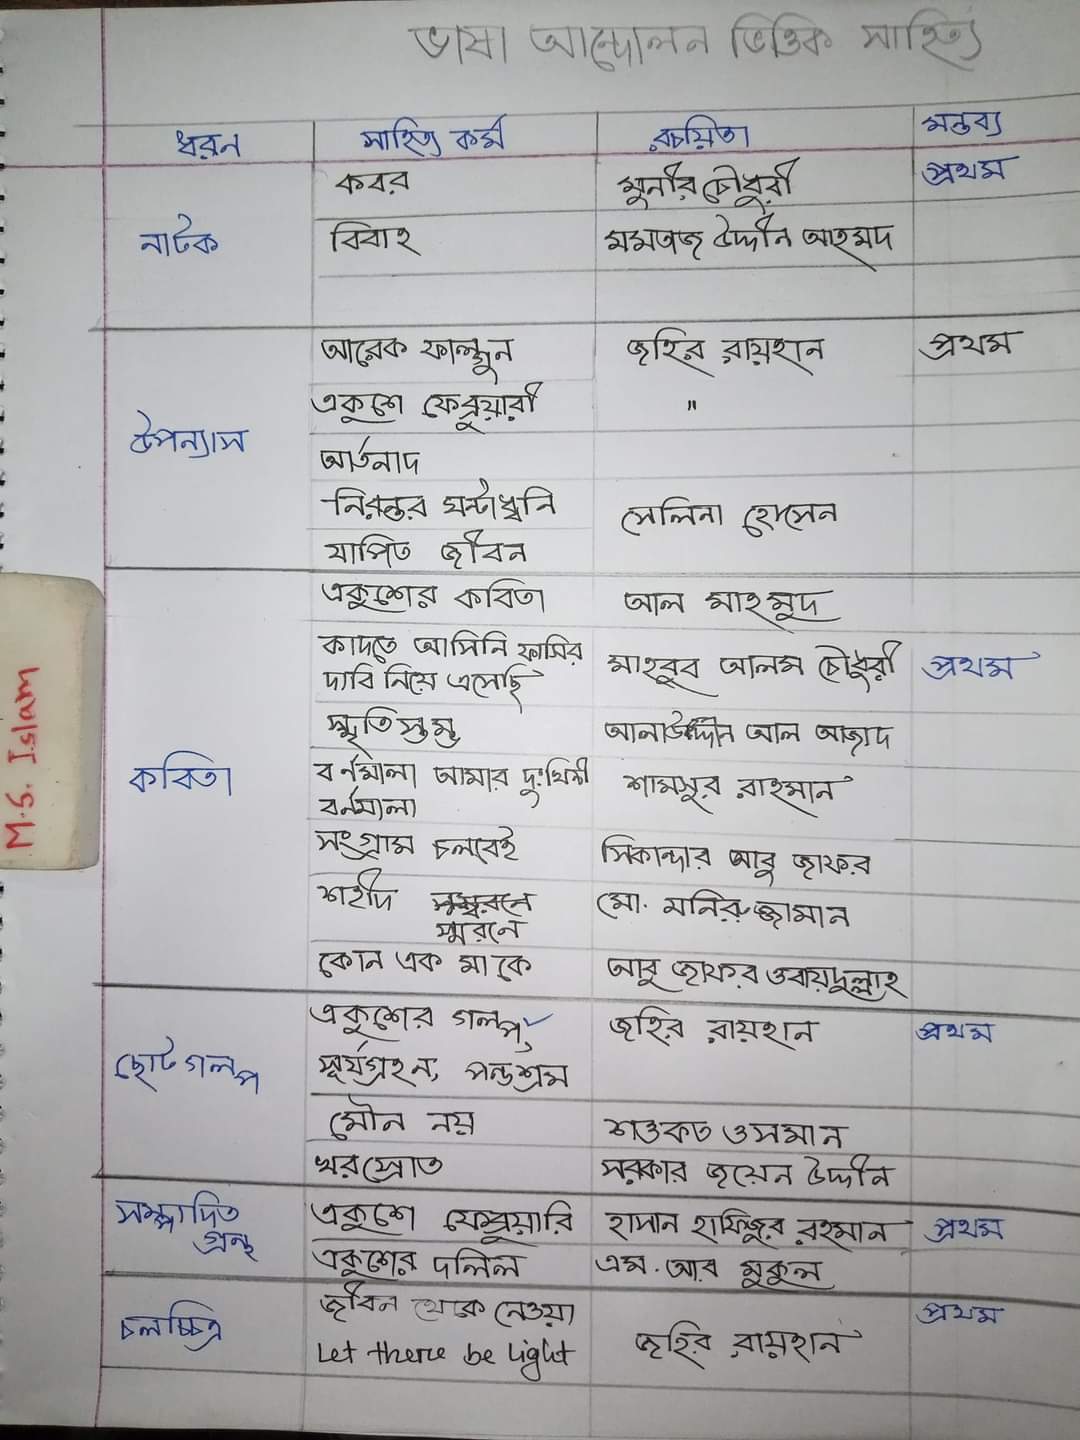 ভাষা আন্দোলন ভিত্তিক সাহিত্য
ধরন সাহিত্য কর্ম রচয়িতা মন্তব্য
কবর মুনীর চৌধুরী প্রথম
নাটক বিবাহ মমতাজ উদ্দীন আহমদ
আরেক ফাল্গুন জহির রায়হান প্রথম
একুশে ফেব্রুয়ারী "
উপন্যাস
আর্তনাদ
নিরন্তর ঘন্টাধ্বনি সেলিনা হোসেন
যাপিত জীবন
একুশের কবিতা আল মাহমুদ
কাদতে আসিনি ফাসির
দাবি নিয়ে এসেছি মাহবুব আলম চৌধুরী প্রথম
স্মৃতিস্তম্ভ আলাউদ্দীন আল আজাদ
কবিতা বর্নমালা আমার দুঃখিনী
বর্নমালা শামসুর রাহমান
সংগ্রাম চলবেই সিকান্দার আবু জাফর
শহীদ স্মরনে মো. মনিরুজ্জামান
কোন এক মা কে আবু জাফর ওবায়দুল্লাহ
একুশের গল্প, জহির রায়হান প্রথম
ছোট গল্প সূর্যগ্রহন, পন্ডশ্রম
মৌন নয় শওকত ওসমান
খরস্রোত সরকার জয়েন উদ্দীন
সম্পাদিত
গ্রন্থ একুশে ফেব্রুয়ারি হাসান হাফিজুর রহমান প্রথম
একুশের দলিল এম. আর মুকুল
চলচ্চিত্র জীবন থেকে নেওয়া প্রথম
Let there be light জহির রায়হান
M.S. Islam